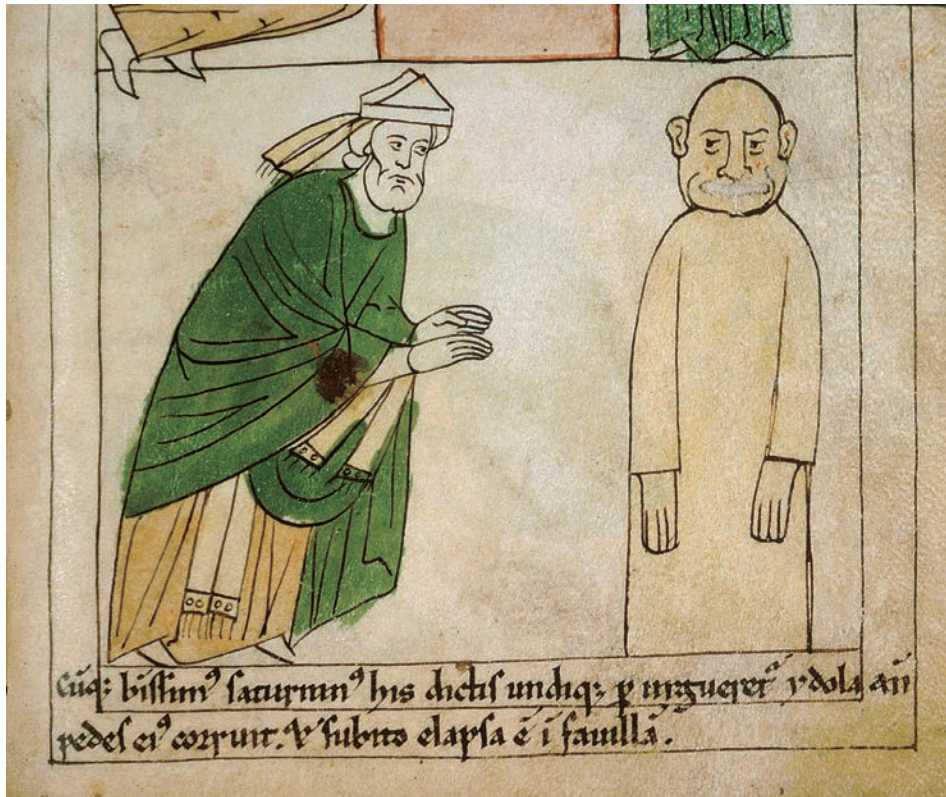 Cūq; bissimꝰ saturninꝰ his dictis undiq; ꝑ urguerer᷑ ydola an̄
pedes eiꝰ corruit. & subito elapsa ē ī fauillā.